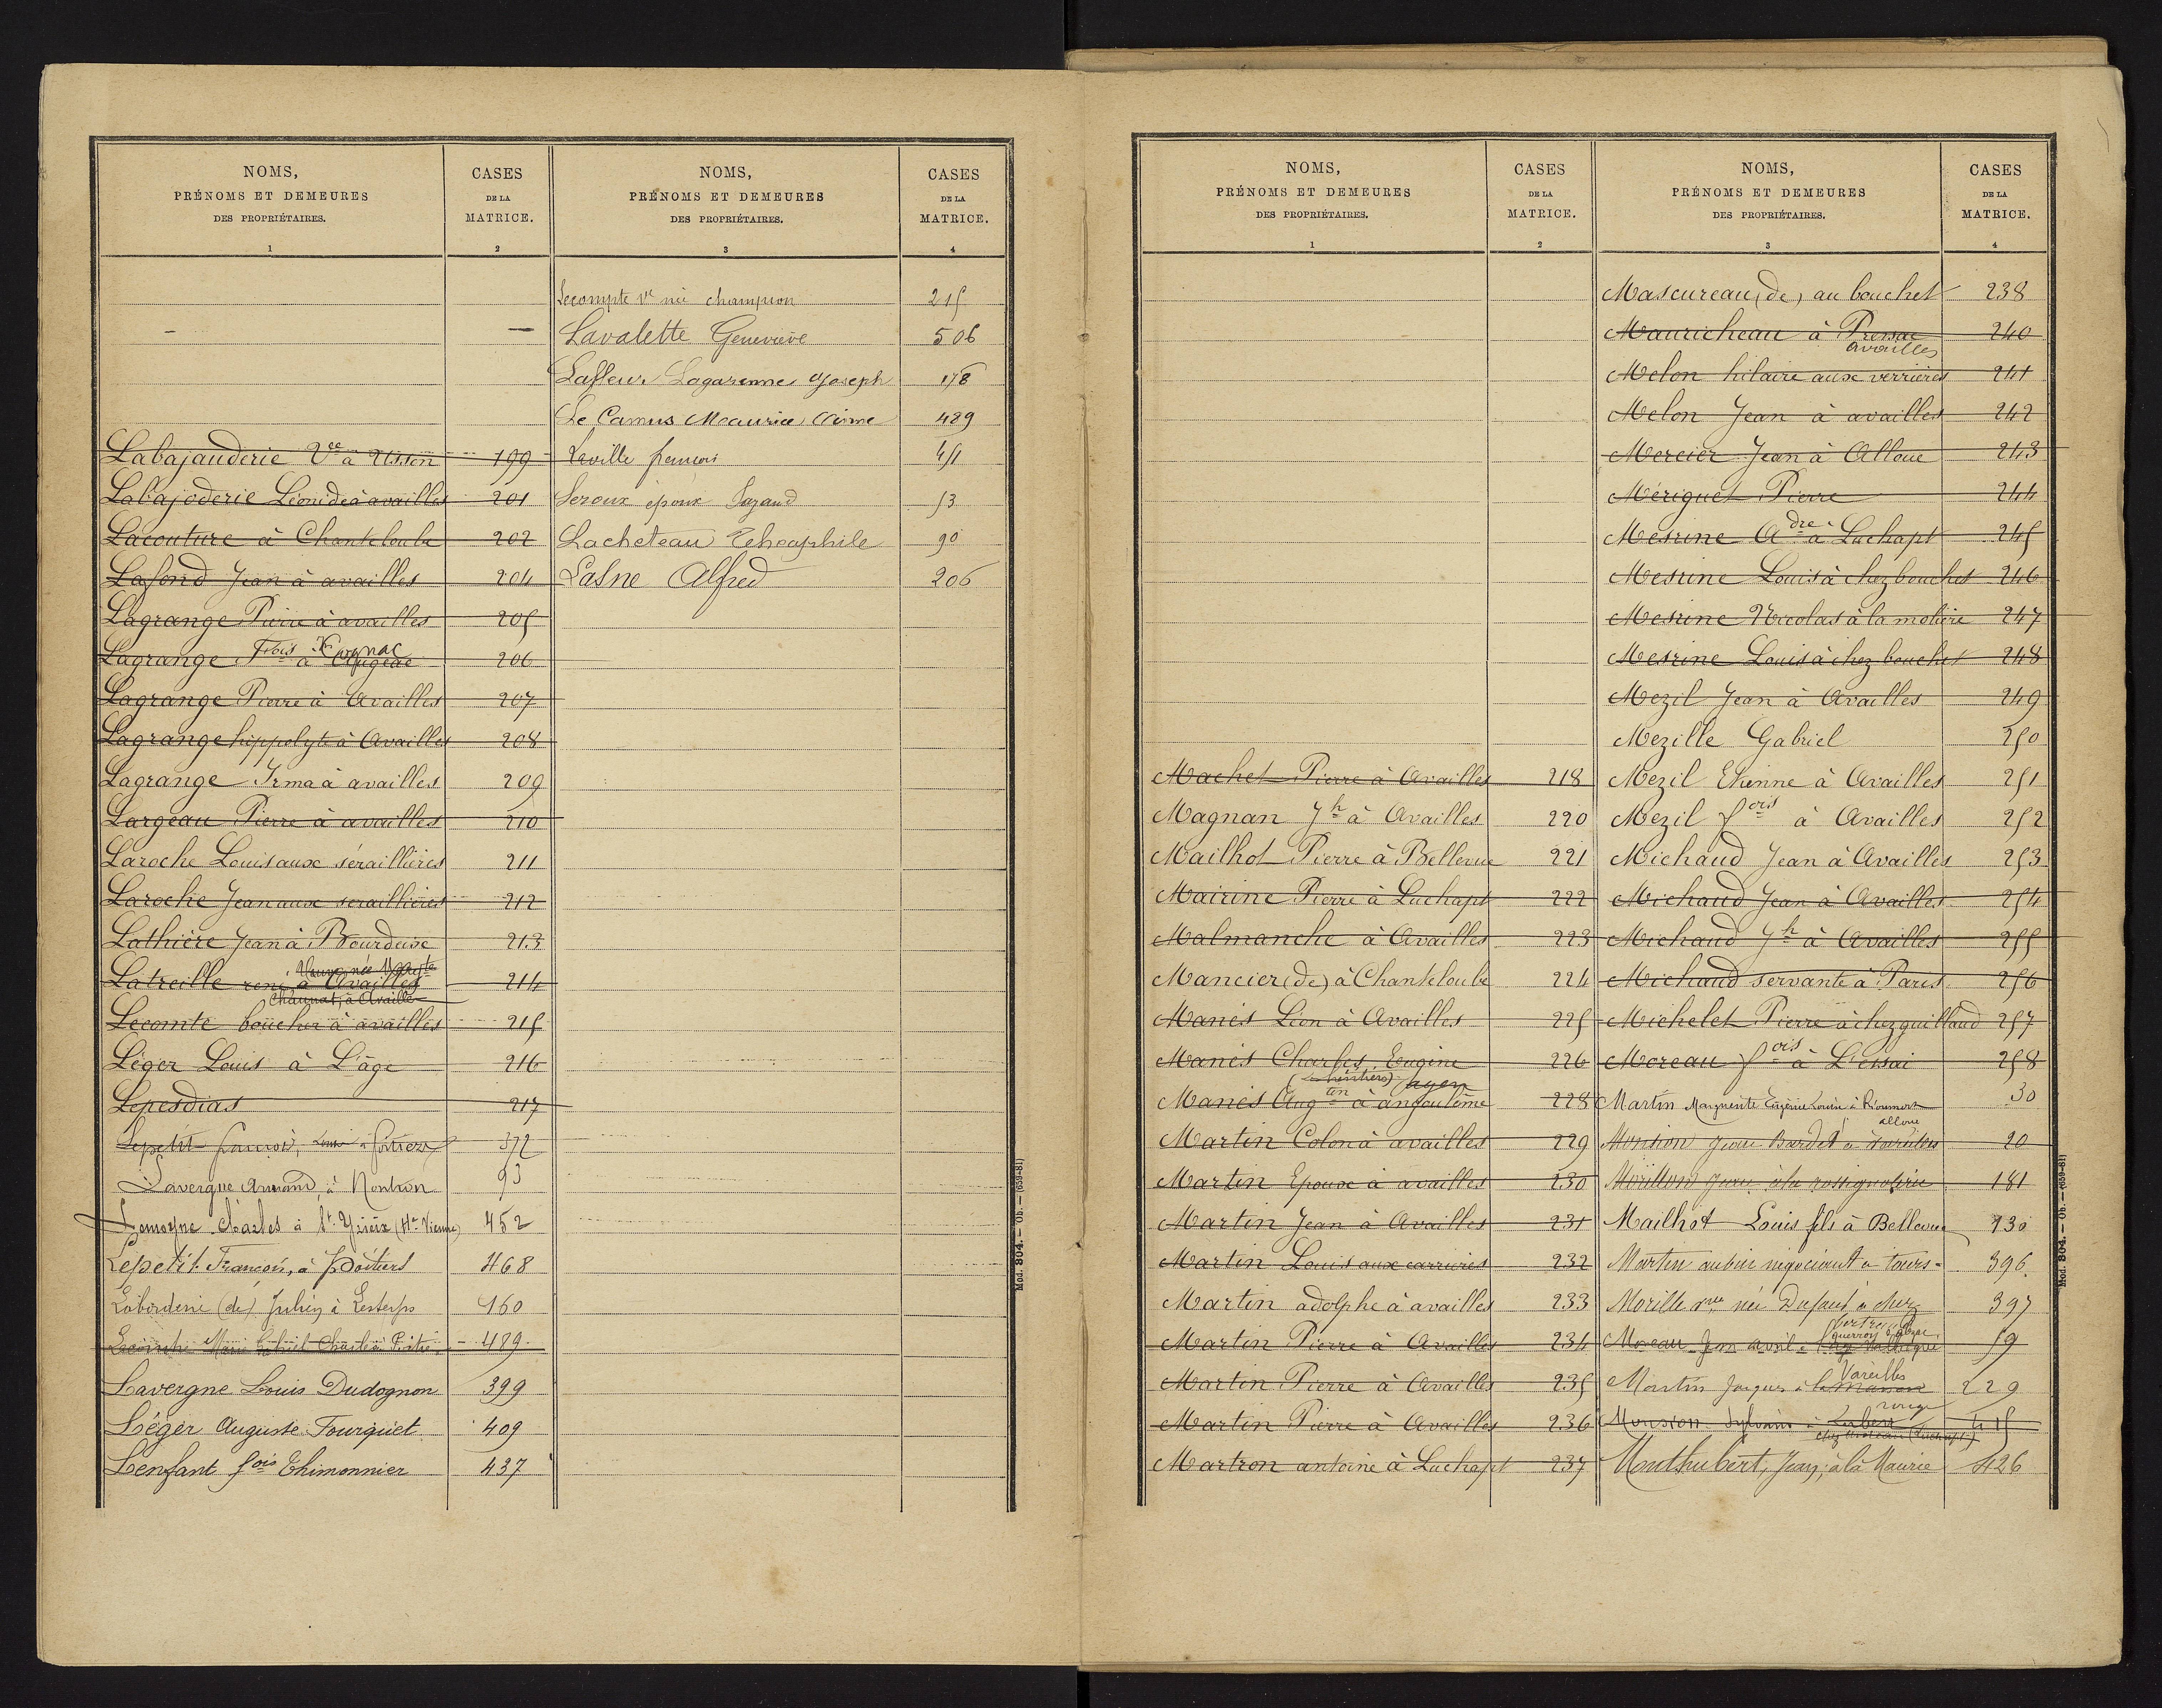 NOMS,
PRÉNOMS ET DEMEURES
DES PROPRIÉTAIRES.
1
CASES
DE LA
MATRICE.
2
Labajauderie Vve à Usson 199
Labajoderie Léonide à availles 201
Lacouture à Chanteloube 202
Lafond Jean à availles 204
Lagrange Pierre à availles 205
Lagrange Fois à 206
Lagrange Pierre à Availles 207
Lagrange hippolyte à Availles 208
Lagrange Irma à availles 209
Largeau Pierre à availles 210
Laroche Louis aux séraillières 211
Laroche Jean aux seraillières 212
Lathière Jean à Bourdeixe 213
Veuve née
Latreille rené à Availles 214
Chaunat, à Availle
Lecomte boucher à availles 215
Léger Louis à L'âge 216
Lepesdias 217
Lepetit françois, à Poitiers 372
Lavergne Armand, à Nontron 93
Lemoyne Charles à St Yrieix (Hte Vienne) 452
Lepetit François, à Poitiers 468
Laborderie (de) Julien à Lesterps 160
Lecointe Marie Gabriel Charles à Poitiers 489
Lavergne Louis Dudognon 399
Léger Auguste Fourquet 409
Lenfant fois Thimonnier 437
NOMS,
PRÉNOMS ET DEMEURES
DES PROPRIÉTAIRES.
3
CASES
DE LA
MATRICE.
4
Lecompte Ve née champion 215
Lavalette Geneviève 506
Lafleur Lagarenne Joseph 178
Le Camus Maurice Aimé 489
Laville françois 451
Leroux époux Sazaud 53
Lacheteau Théophile 90
Lasne Alfred 206
Mod. 804. — Ob. — (659-81)
NOMS,
PRÉNOMS ET DEMEURES
DES PROPRIÉTAIRES.
1
CASES
DE LA
MATRICE.
2
Machet Pierre à Availles 218
Magnan Jh à Availles 220
Mailhot Pierre à Bellevue 221
Mairine Pierre à Luchapt 222
Malmanche à Availles 223
Mancier (de) à Chanteloube 224
Manès Léon à Availles 225
Manès Charles, Eugène 226
(héritiers) agen
Manès Augtin à angoulême 228
Martin Colon à availles 229
Martin Epoux à availles 230
Martin Jean à Availles 231
Martin Louis aux carrières 232
Martin adolphe à availles 233
Martin Pierre à Availles 234
Martin Pierre à Availles 235
Martin Pierre à Availles 236
Martron antoine à Luchapt 237
NOMS,
PRÉNOMS ET DEMEURES
DES PROPRIÉTAIRES.
3
CASES
DE LA
MATRICE.
4
Mascureau (de) au bouchet 238
Mauricheau à Pressac 240
availles
Melon hilaire aux verrières 241
Melon Jean à availles 242
Mercier Jean à Alloue 243
Mériguet Pierre 244
Mesrine Adre à Luchapt 245
Mesrine Louis à chez bouchet 246
Mesrine Nicolas à la molière 247
Mesrine Louis à chez bouchet 248
Mezil Jean à Availles 249
Mezille Gabriel 250
Mezil Etienne à Availles 251
Mezil fois à Availles 252
Michaud Jean à Availles 253
Michaud Jean à Availles 254
Michaud Jh à Availles 255
Michaud servante à Paris 256
Michelet Pierre à chez guillaud 257
Moreau fois à L'essai 258
Martin Marguerite Eugénie Louise à Rioumort 30
alloue
Monsion Jean Bardet à Vareilles 20
Morillon Jean à la rossignolerie 181
Mailhot Louis fils à Bellevue 130
Martin aubin négociant à tours 396
Morille vve née Dufaud à chez 397
Moreau Jean avril à 59
Vareilles
Martin Jacques à la maison 229
rouge
Monsion Sylvain à 415
(Luchapt)
Monthubert, Jean, à la Mairie 426
Mod. 804. — Ob. — (659-81)